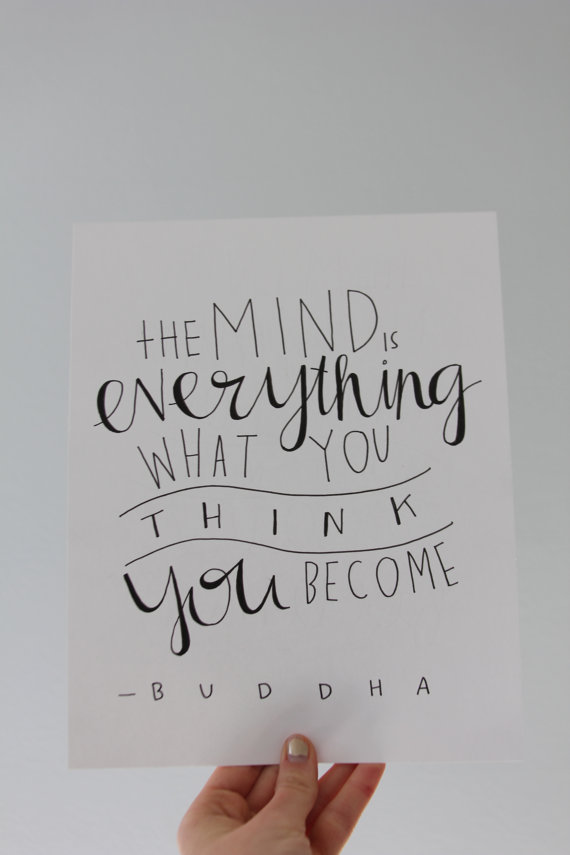 tHE MIND is
everything
WHAT YOU
THINK
you BECOME
– BUDDHA